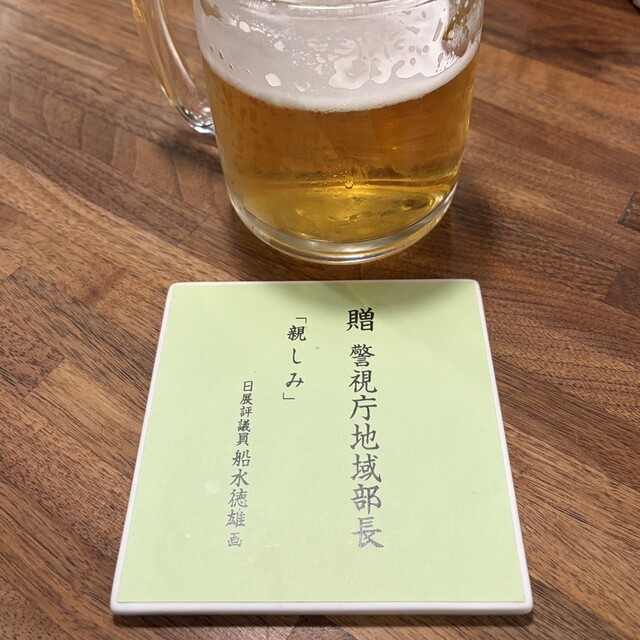 贈 警視庁地域部長
「親しみ」
日展評議員 船水徳雄 画